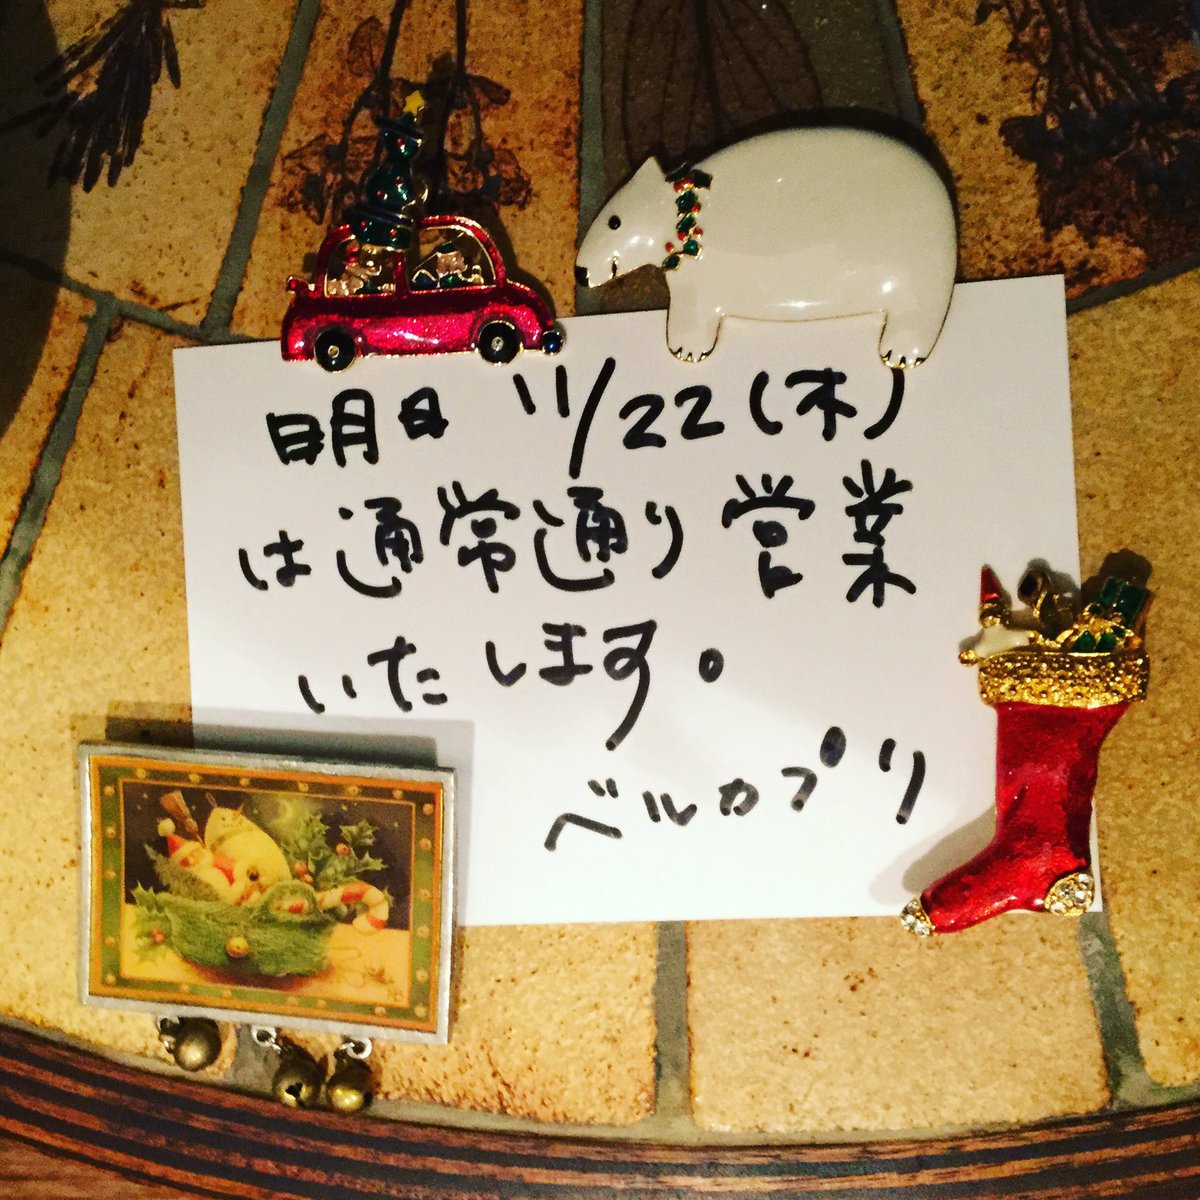 明日 11/22(木)
は通常通り営業
いたします。
ベルカプリ